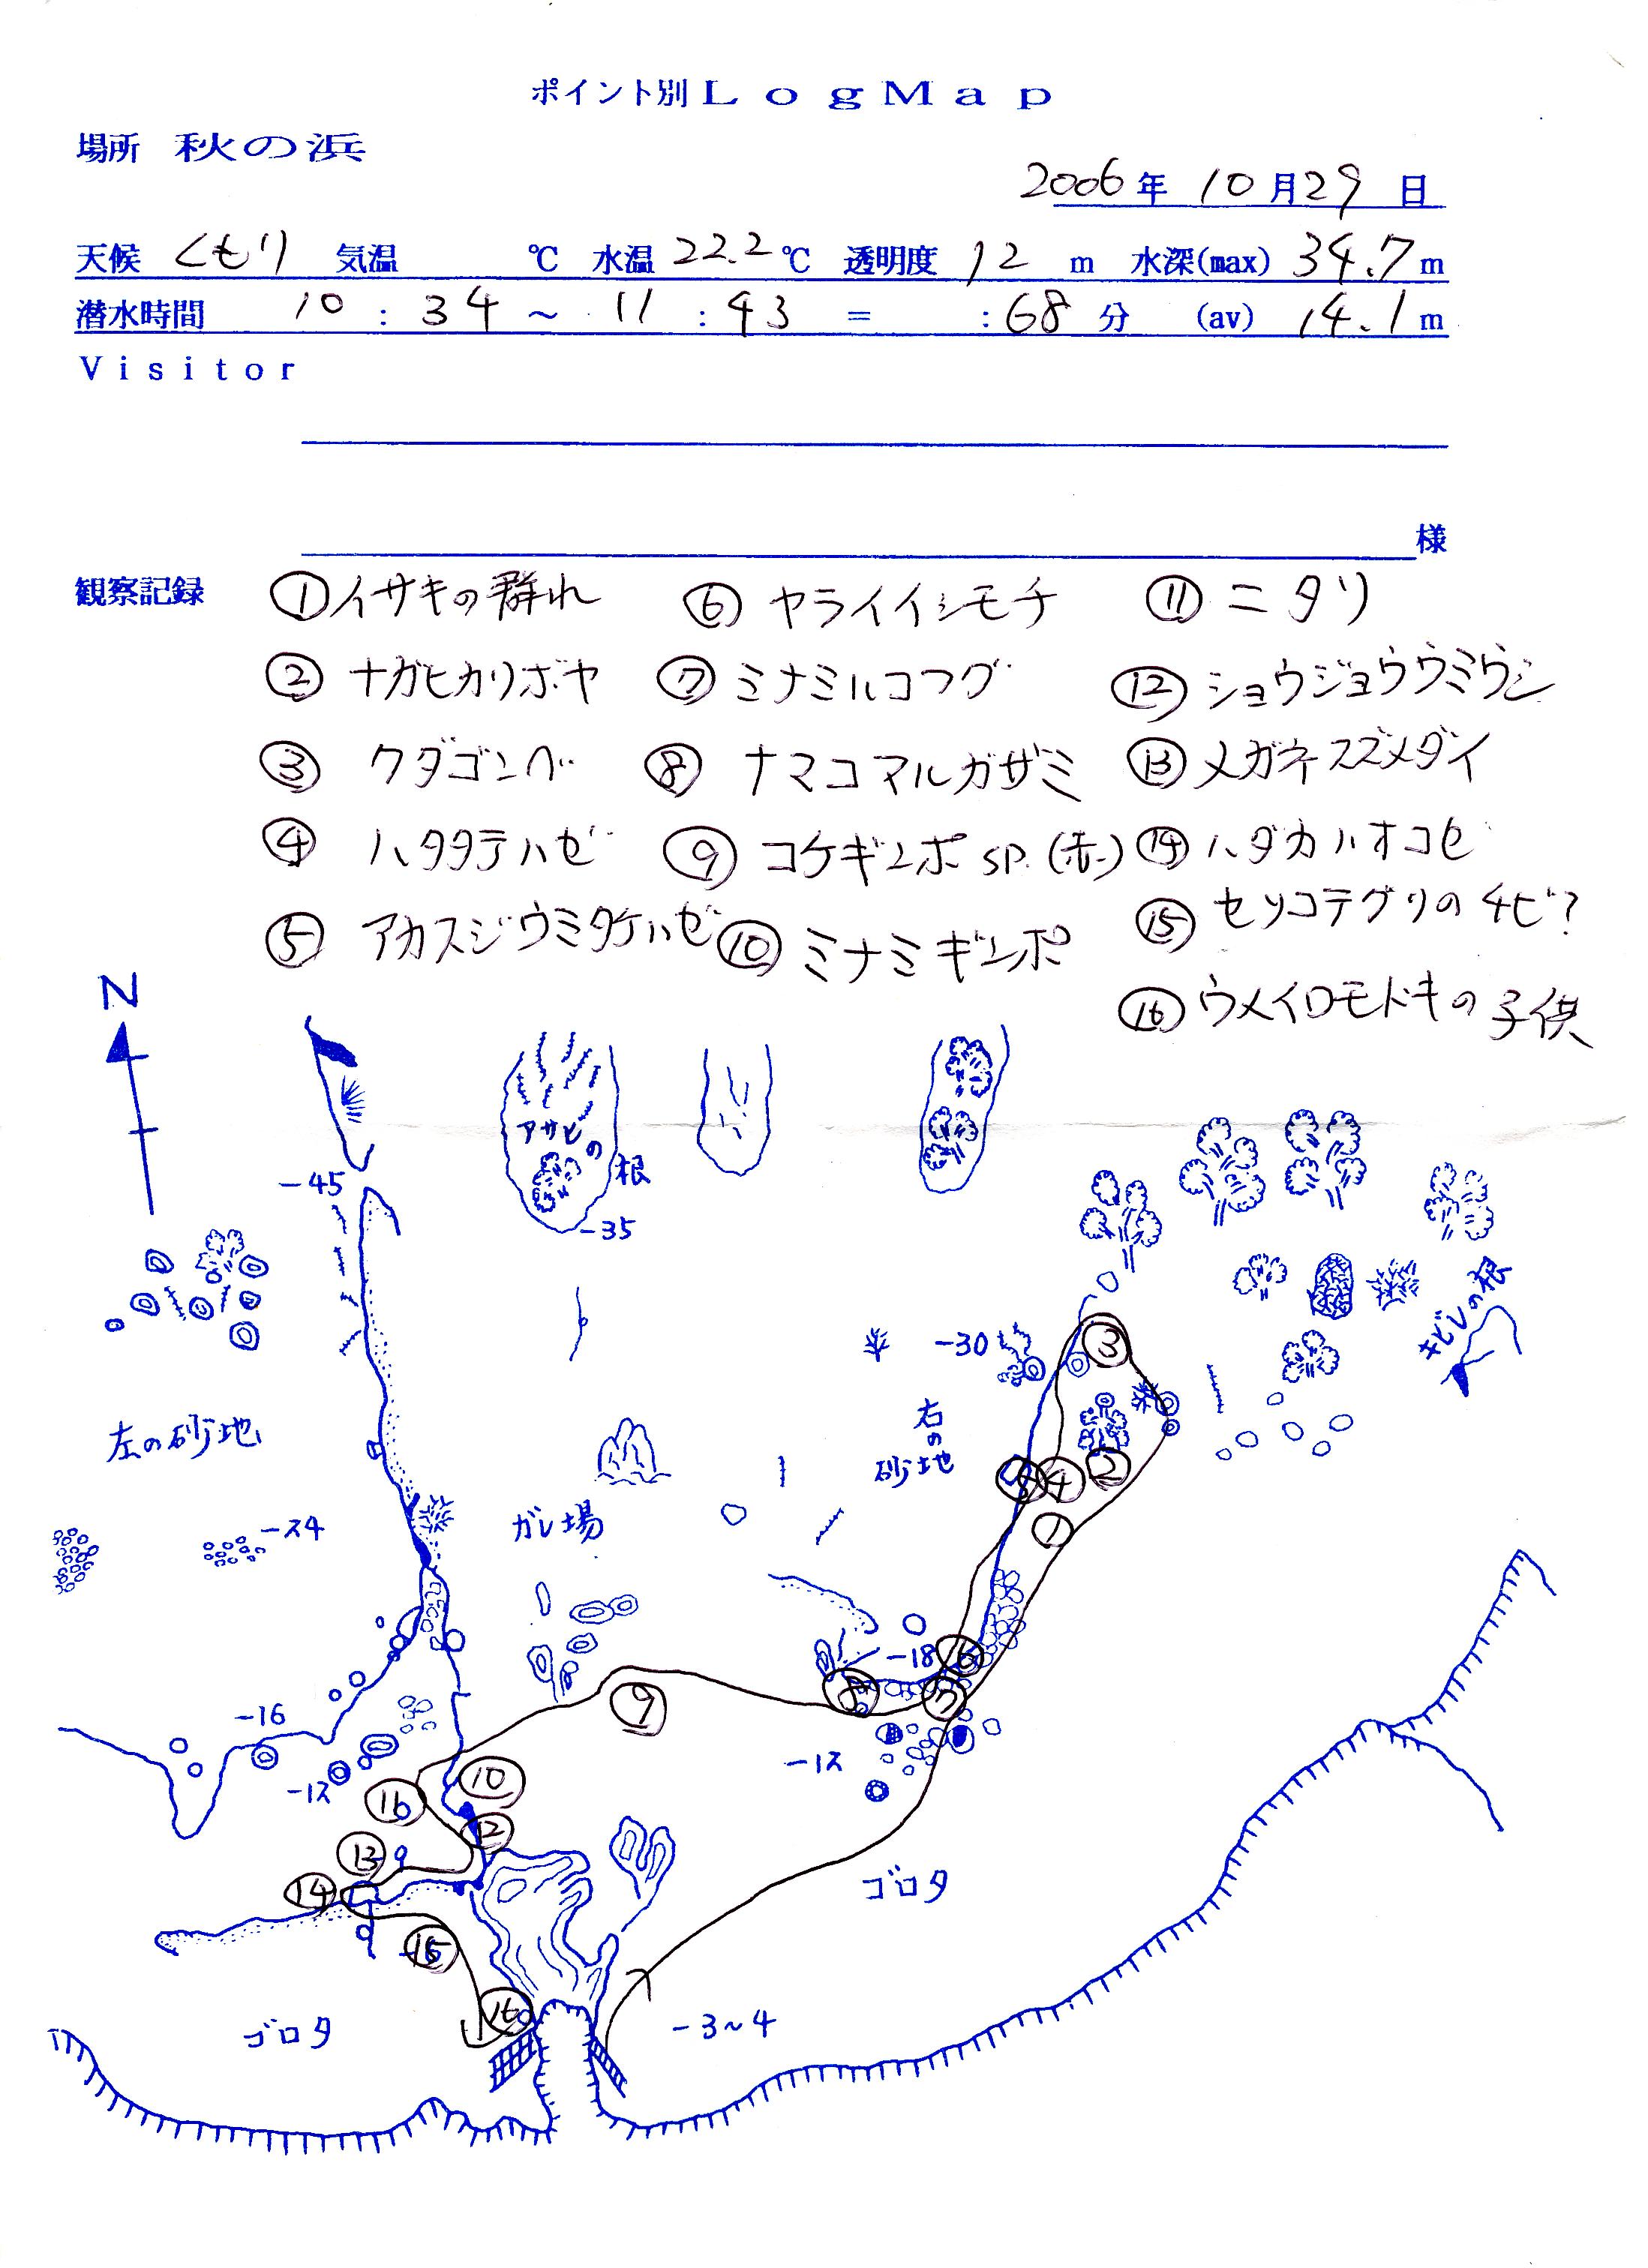 ポイント別 LogMap
場所 秋の浜
2006年 10月29日
天候 くもり 気温 ℃ 水温 22.2℃ 透明度 12 m 水深(max) 34.7 m
潜水時間 10:34 ~ 11:43 = :68分 (av) 14.1 m
Visitor
様
観察記録 ①イサキの群れ ⑥ヤライイシモチ ⑪ニタリ
②ナガヒカリボヤ ⑦ミナミハコフグ ⑫ショウジョウウミウシ
③クダゴンベ ⑧ナマコマルガザミ ⑬メガネスズメダイ
④ハタタテハゼ ⑨コケギンポ sp.(赤) ⑭ハダカハオコゼ
⑤アカスジウミタケハゼ ⑩ミナミギンポ ⑮セソコテグリのチビ?
⑯ウメイロモドキの子供
N
アサヒの根
-45
-35
キビレの根
-30
③
右の砂地
左の砂地
④ ②
ガレ場
-24
①
-18 ⑥
⑧ ⑦
⑨
-16
-12
-12
⑩
⑯
⑫
⑬ -9
⑭
ゴロタ
⑮
⑯
ゴロタ
-3~4